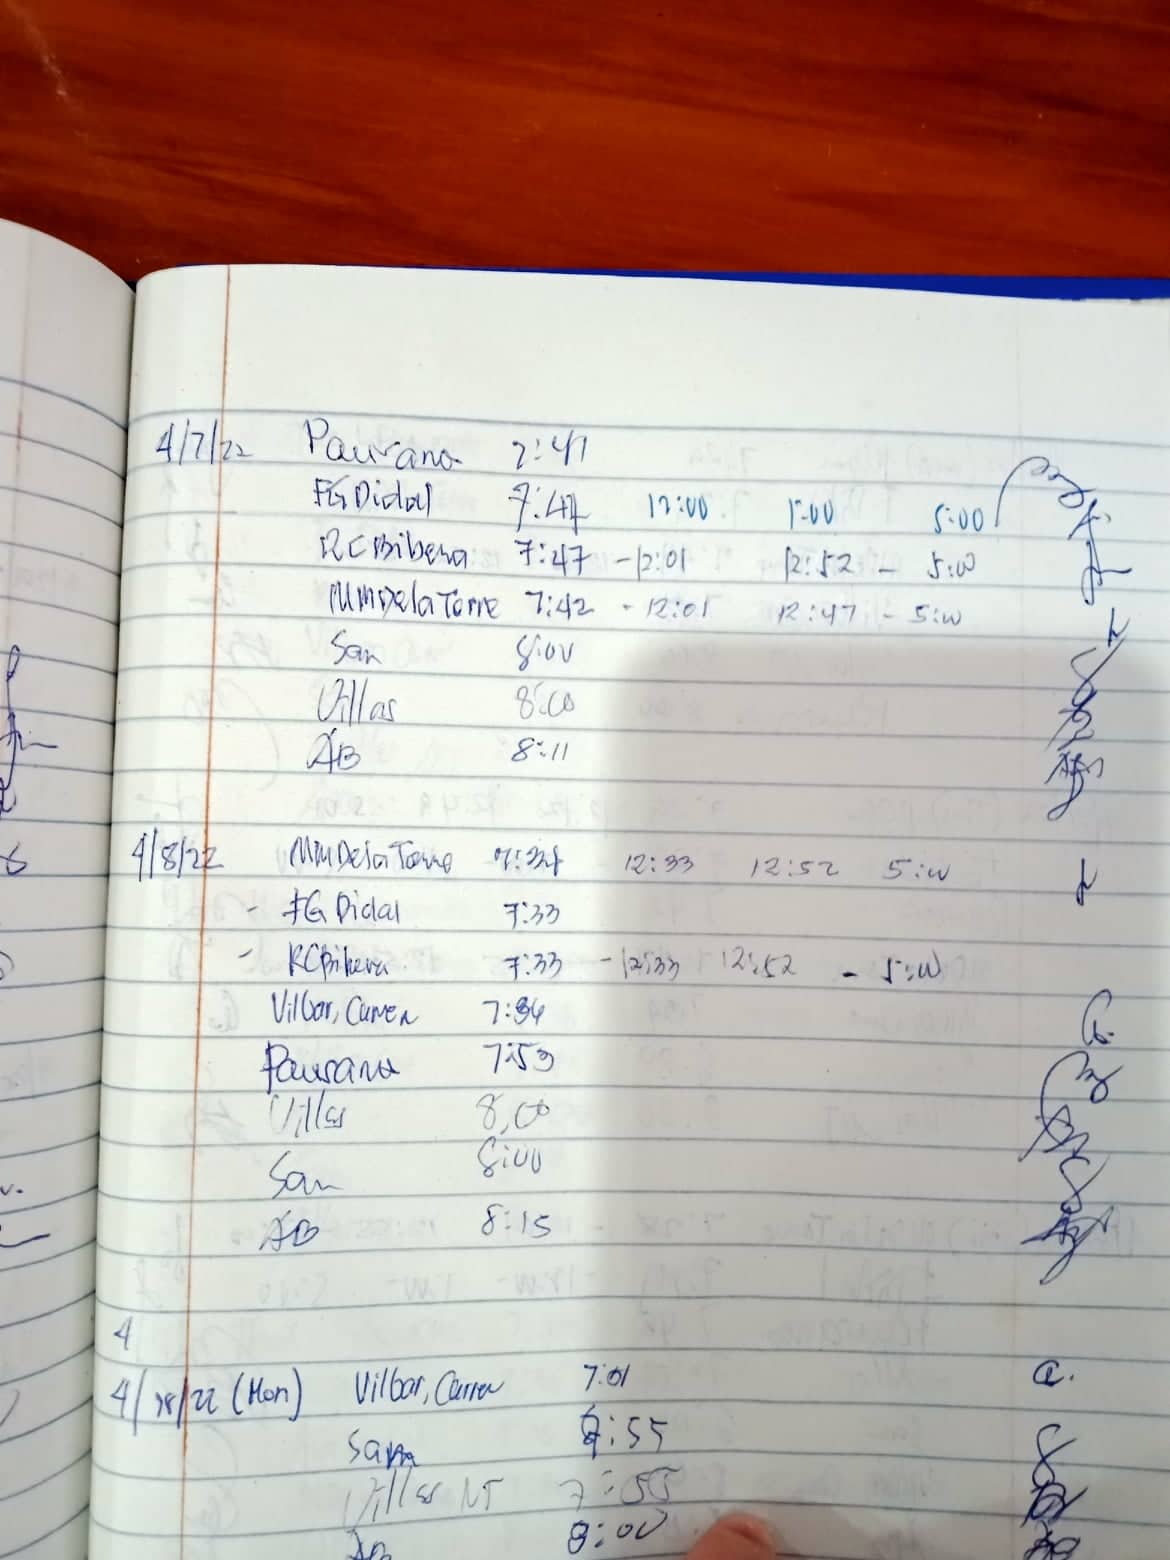 4/7/22 Paurano 7:47
FG Didal 7:47 12:00 1:00 5:00
RCBibera 7:47 - 12:01 12:52 - 5:00
MMDelaTorre 7:42 - 12:01 12:47 - 5:00
San 8:00
Villas 8:00
AB 8:11
4/8/22 MMDelaTorre 7:34 12:33 12:52 5:00
- FG Didal 7:33
- RCBibera 7:33 - 12:33 12:52 - 5:00
Vilbar, Carren 7:34
Paurano 7:53
Villas 8,00
San 8:00
AB 8:15
4
4/18/22 (Mon) Vilbar, Carren 7:01
San 7:55
Villas NT 7:55
AB 8:00